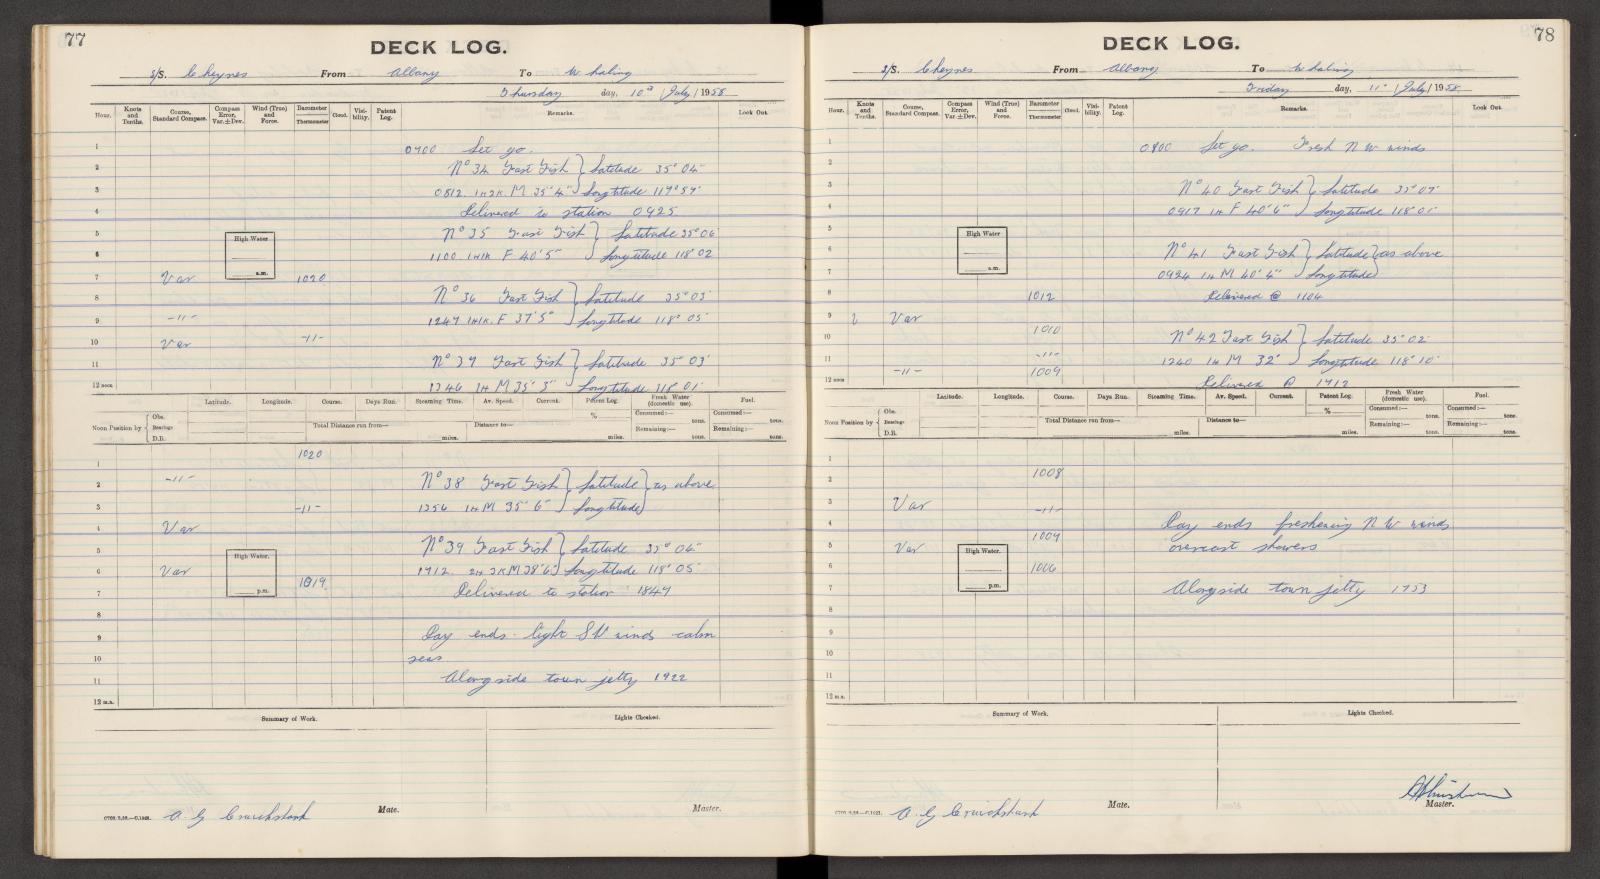 77
DECK LOG.
S/S. Cheynes From Albany To Whaling
Thursday day, 10th / July / 1958
Hour. Knots and Tenths. Course, Standard Compass. Compass Error, Var.±Dev. Wind (True) and Force. Barometer Thermometer Cloud. Visibility. Patent Log. Remarks. Look Out.
1 0700 Set go.
2 No 34 Fast Fish } Latitude 35° 04'
3 0812. 1H2K. M 35' 4" } Longtitude 117° 59'
4 Delivered to station 0925
5 No 35 Fast Fish } Latitude 35° 06'
High Water
6 1100 1H1K F 40' 5" } Longtitude 118° 02
a.m.
7 Var 1020
8 No 36 Fast Fish } Latitude 35° 03'
9 -11- 1247 1H1K. F 37' 5" } Longtitude 118° 05'
10 Var -11-
11 No 37 Fast Fish } Latitude 35° 03'
12 noon 1346 1H M 35' 3" } Longtitude 118° 01'
Latitude. Longitude. Course. Days Run. Steaming Time. Av. Speed. Current. Patent Log. Fresh Water (domestic use). Fuel.
Noon Position by { Obs. Bearings D.R.
% Consumed:— tons. Consumed:— tons.
Total Distance run from— miles. Distance to— miles. Remaining:— tons. Remaining:— tons.
1 1020
2 -11- No 38 Fast Fish } Latitude } as above
3 -11- 1356 1H M 35' 6" } Longtitude }
4 Var
5 No 39 Fast Fish } Latitude 35° 04'
High Water.
6 Var 1712. 2H 3K M 38' 6" } Longtitude 118° 05'
p.m.
7 1019. Delivered to station 1847
8
9 Day ends light SW winds calm
10 seas
11 Alongside town jetty 1922
12 m.n.
Summary of Work. Lights Checked.
A. G Cruickshank Mate. Master.
78
DECK LOG.
S/S. Cheynes From Albany To Whaling
Friday day, 11th / July / 1958.
Hour. Knots and Tenths. Course, Standard Compass. Compass Error, Var.±Dev. Wind (True) and Force. Barometer Thermometer Cloud. Visibility. Patent Log. Remarks. Look Out.
1 0700 Set go. Fresh N W winds
2
3 No 40 Fast Fish } Latitude 35° 07'
4 0917 1H F 40' 6" } Longtitude 118° 01'
5
High Water
6 No 41 Fast Fish } Latitude } as above
a.m.
7 0924 1H M 40' 4" } Longtitude }
8 1012 Delivered @ 1104
9 Var
10 1010 No 42 Fast Fish } Latitude 35° 02'
11 -11- 1240 1H M 32' } Longtitude 118° 10'
12 noon -11- 1009 Delivered @ 1712
Latitude. Longitude. Course. Days Run. Steaming Time. Av. Speed. Current. Patent Log. Fresh Water (domestic use). Fuel.
Noon Position by { Obs. Bearings D.R.
% Consumed:— tons. Consumed:— tons.
Total Distance run from— miles. Distance to— miles. Remaining:— tons. Remaining:— tons.
1
2 1008
3 Var -11-
4 Day ends freshening N W winds
5 Var 1007 overcast showers
High Water.
6 1006
p.m.
7 Alongside town jetty 1753
8
9
10
11
12 m.n.
Summary of Work. Lights Checked.
A. G Cruickshank Mate. Master.